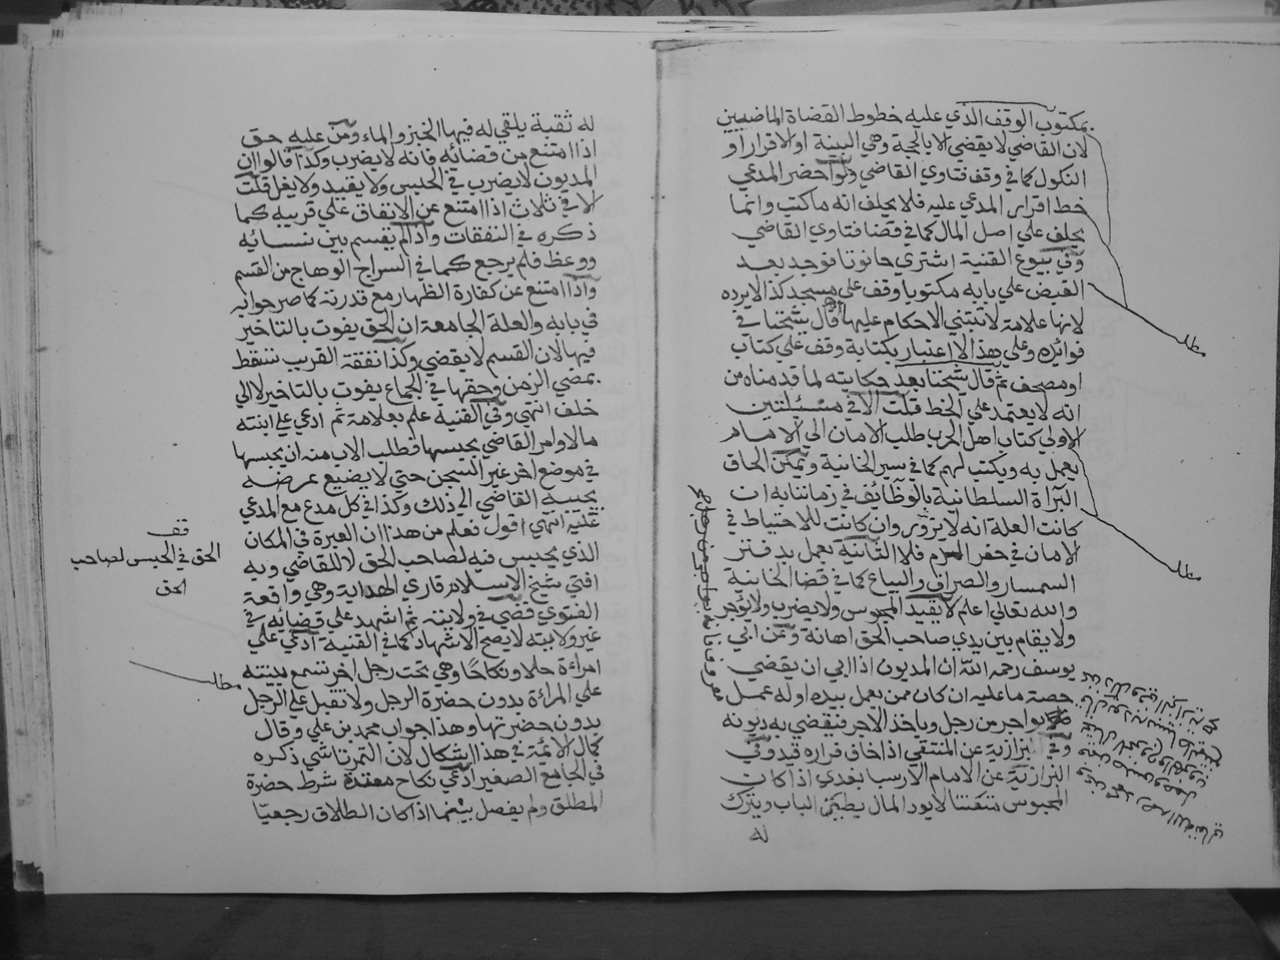 بمكتوب الوقف الذي عليه خطوط القضاة الماضيين
لان القاضي لا يقضي الا بالحجة وهي البينة او الاقرار او
النكول كما في وقف فتاوي القاضي ولو احضر المدعي
خط اقرار المدعي عليه فلا يحلف انه ما كتب وانما
يحلف علي اصل المال كما في قضا فتاوي القاضي
وفي بيوع القنية اشتري حانوتا فوجد بعد
القبض علي بابه مكتوبا وقف علي مسجد كذا لا يرده
لانها علامة لا تبتني الاحكام عليها قال شيخنا في
فوائده وعلي هذا لا اعتبار بكتابة وقف علي كتاب
او مصحف ثم قال شيخنا بعد حكايته لما قدمناه من
انه لا يعتمد علي الخط قلت الا في مسئلتين
الاولي كتاب اهل الحرب طلب الامان الي الامام
يعمل به ويكتب لهم كما في سير الخانية ويمكن الحاق
البراة السلطانية بالوظائف في زماننا به ان
كانت العلة انه لا يزور وان كانت للاحتياط في
الامان في حقن الدم فلا الثانية يعمل بدفتر
السمسار والصراف والبياع كما في قضا الخانية
والله تعالي اعلم لا يقيد المحبوس ولا يضرب ولا يؤجر
ولا يقام بين يدي صاحب الحق اهانة وعن ابي
يوسف رحمه الله ان المديون اذا ابي ان يقضي
حصة ما عليه ان كان ممن يعمل بيده اوله عمل
يواجر من رجل وياخذ الاجر فيقضي به ديونه
وفي البزازية عن المنتقي اذا خاف فراره قيد وفي
البزازية عن الامام الارسابندي اذا كان
المحبوس متعنتا لا يود المال يطين الباب ويترك
له
مطلب
مطلب
له ثقبة يلقي له فيها الخبز والماء ومن عليه حق
اذا امتنع من قضائه فانه لا يضرب وكذا قالوا ان
المديون لا يضرب في الحبس ولا يقيد ولا يغل قلت
الا في ثلاث اذا امتنع عن الانفاق علي قريبه كما
ذكره في النفقات واذا لم يقسم بين نسائه
ووعظ فلم يرجع كما في السراج الوهاج من القسم
واذا امتنع عن كفارة الظهار مع قدرته كما صرحوا به
في بابه والعلة الجامعة ان الحق يفوت بالتاخير
فيها لان القسم لا يقضي وكذا نفقة القريب تسقط
بمضي الزمن وحقها في الجماع يفوت بالتاخير لا الي
خلف انتهي وفي القنية علم بعلامة ثم ادعي علي ابنته
مالا وامر القاضي بحبسها فطلب الاب منه ان يحبسها
في موضع اخر غير السجن حتي لا يضيع عرضه
يجيبه القاضي الي ذلك وكذا في كل مدع مع المدعي
عليه انتهي اقول فعلم من هذا ان العبرة في المكان
الذي يحبس فيه لصاحب الحق لا للقاضي وبه
افتي شيخ الاسلام قاري الهداية وهي واقعة
الفتوي قضي في ولايته ثم اشهد علي قضائه في
غير ولايته لا يصح الاشهاد كما في القنية ادعي علي
امراءة حلا ونكاحا وهي تحت رجل اخر تسمع بينته
علي المراءة بدون حضرة الرجل ولا تقبل علي الرجل
بدون حضرتها وهذا جواب محمد بن علي وقال
كمال الائمة في هذا اشكال لان التمرتاشي ذكره
في الجامع الصغير ادعي نكاح معتدة شرط حضرة
المطلق ولم يفصل بينهما اذا كان الطلاق رجعيا
قف
الحق في الحبس لصاحب
الحق
مطلب